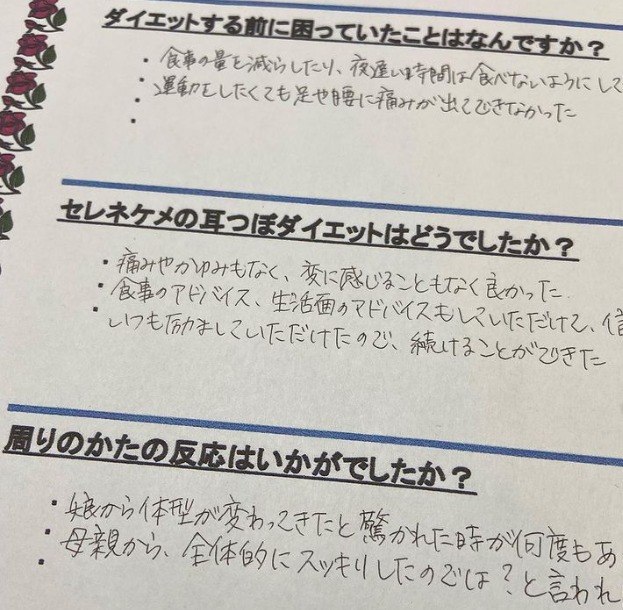 ダイエットする前に困っていたことはなんですか？
・食事の量を減らしたり、夜遅い時間は食べないようにして
・運動をしたくても足や腰に痛みが出てできなかった
・
セレネケメの耳つぼダイエットはどうでしたか？
・痛みやかゆみもなく、変に感じることもなく良かった
・食事のアドバイス、生活面のアドバイスもしていただけて、信
・いつも励ましていただけたので、続けることができた
周りのかたの反応はいかがでしたか？
・娘から体型が変わってきたと驚かれた時が何度もあ
・母親から、全体的にスッキリしたのでは？と言われ
・